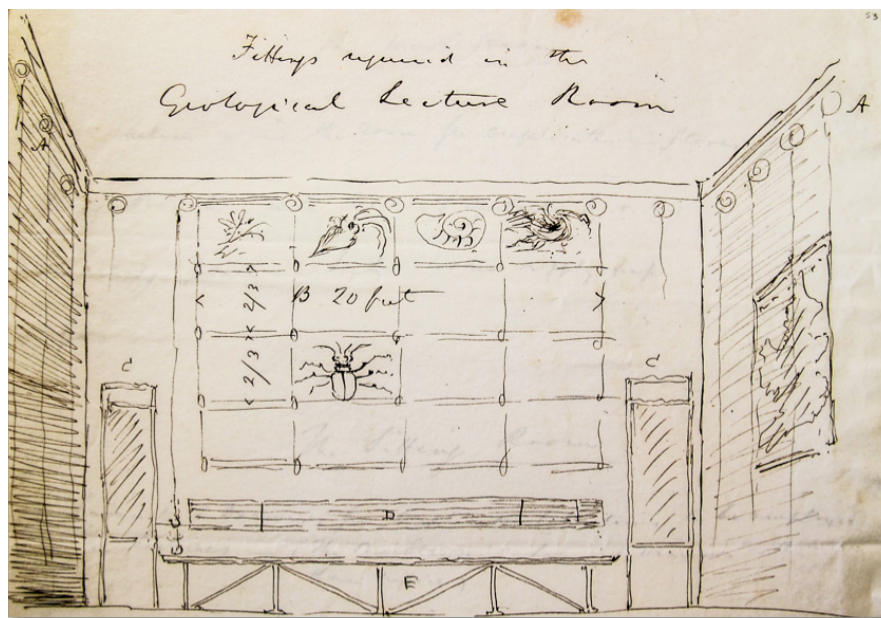 53
Fittings required in the
Geological Lecture Room
A
A
< 2/3 >
B 20 feet
< 2/3 >
C
C
D
E